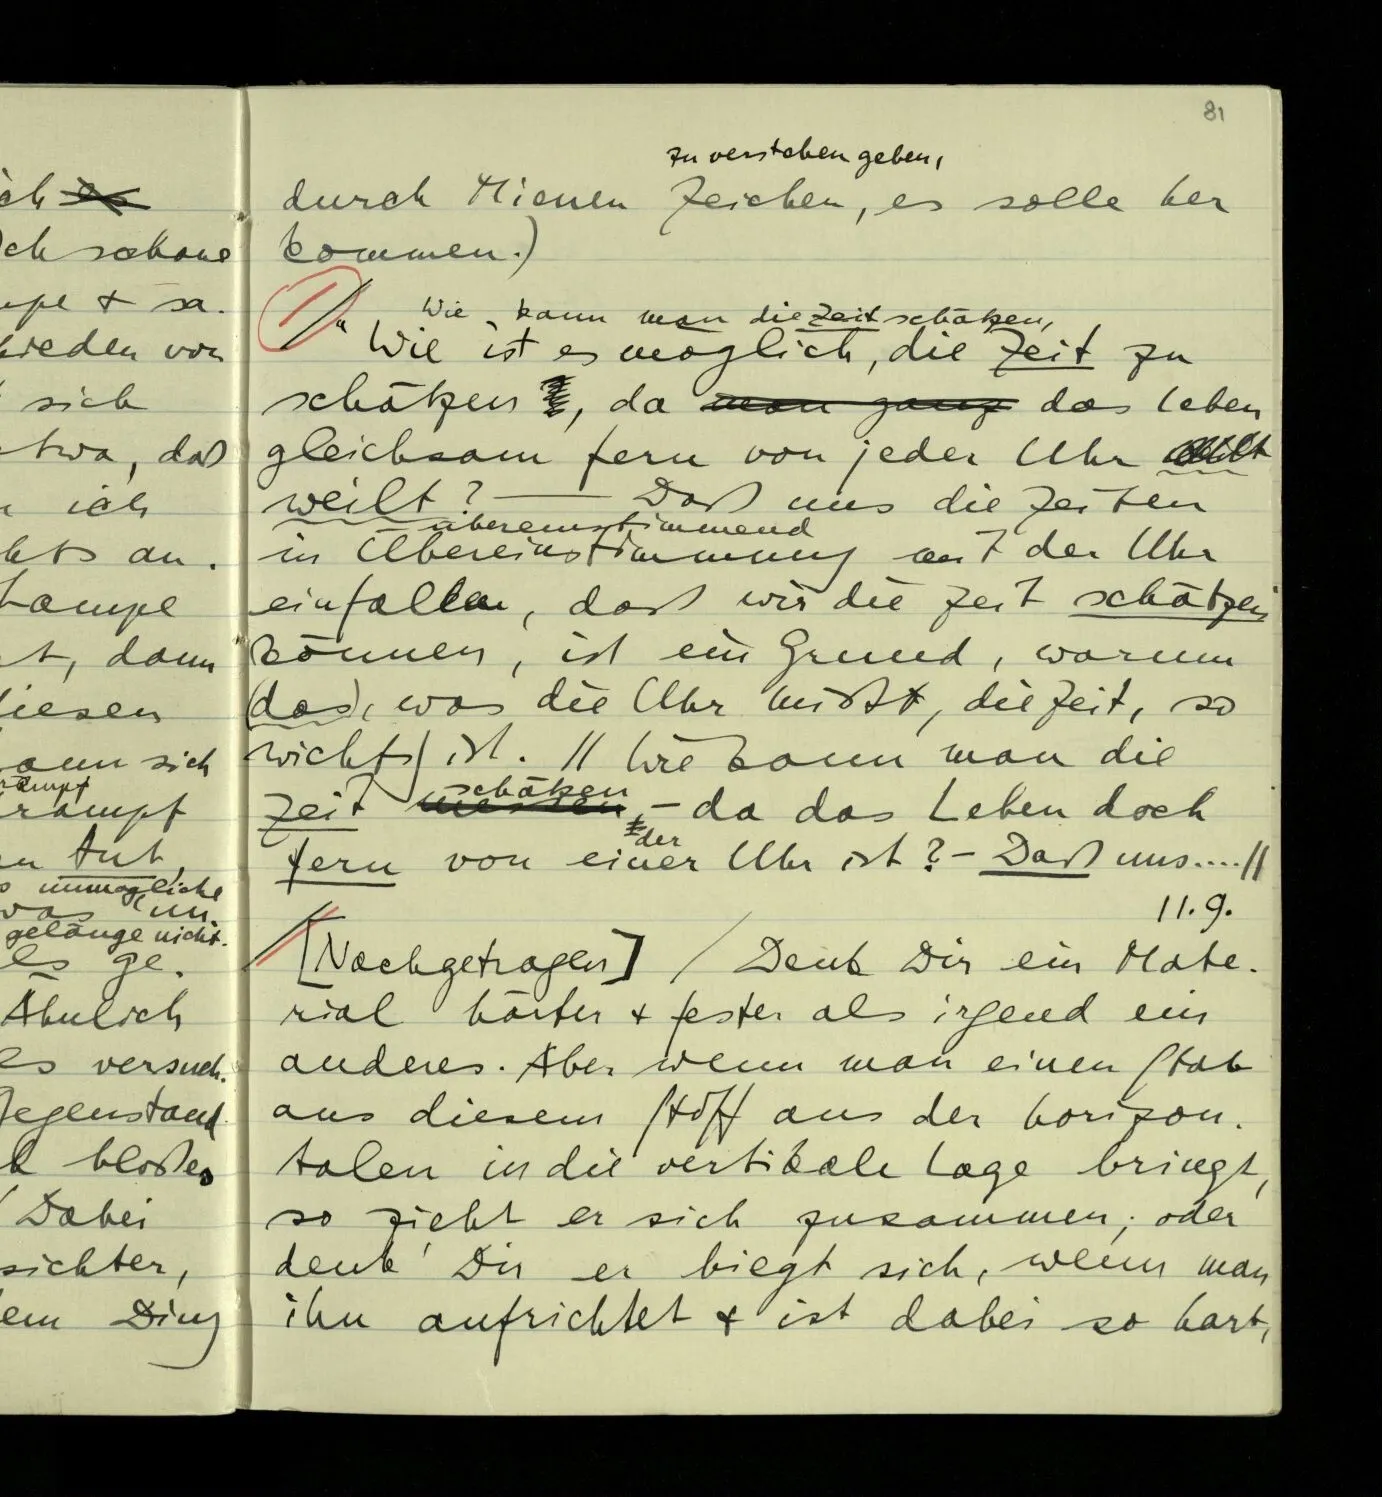 81
ich es
Ich schaue
& sa.
schieden von
sich
etwa, daß
ich
an.
Lampe
dann
diesen
kann sich
Krampf
krampf
Tut,
unmögliche
was un-
gelänge nicht.
es ge-
Ähnlich
es versuch-
Gegenstand
bloßes
Dabei
sichter,
dem Ding
zu verstehen geben,
durch Mienen Zeichen, es solle her
kommen.)
Wie kann man die Zeit schätzen,
Wie ist es möglich, die Zeit zu
schätzen, da man ganz das Leben
gleichsam fern von jeder Uhr
weilt? — Daß uns die Zeiten
übereinstimmend
in Übereinstimmung mit der Uhr
einfallen, daß wir die Zeit schätzen
können, ist ein Grund, warum
(das), was die Uhr mißt, die Zeit, so
wichtig ist. // Wie kann man die
schätzen
Zeit messen, – da das Leben doch
der
fern von einer Uhr ist? – Daß uns.... //
11.9.
[Nachgetragen] / Denk Dir ein Mate-
rial härter & fester als irgend ein
anderes. Aber wenn man einen Stab
aus diesem Stoff aus der horizon-
talen in die vertikale Lage bringt,
so zieht er sich zusammen; oder
denk' Dir er biegt sich, wenn man
ihn aufrichtet & ist dabei so hart,